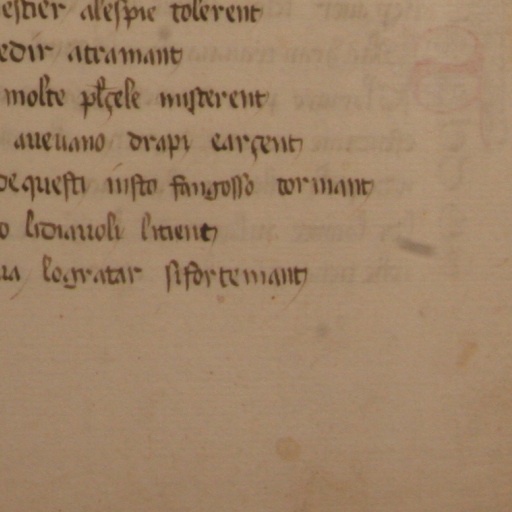 estier alespie tolerent
edir atramant
molte pulçele misterent
aueuano drapi earçent
de questi iusto fangosso tormant
o lidiauoli litient
ua logratar sifortemant